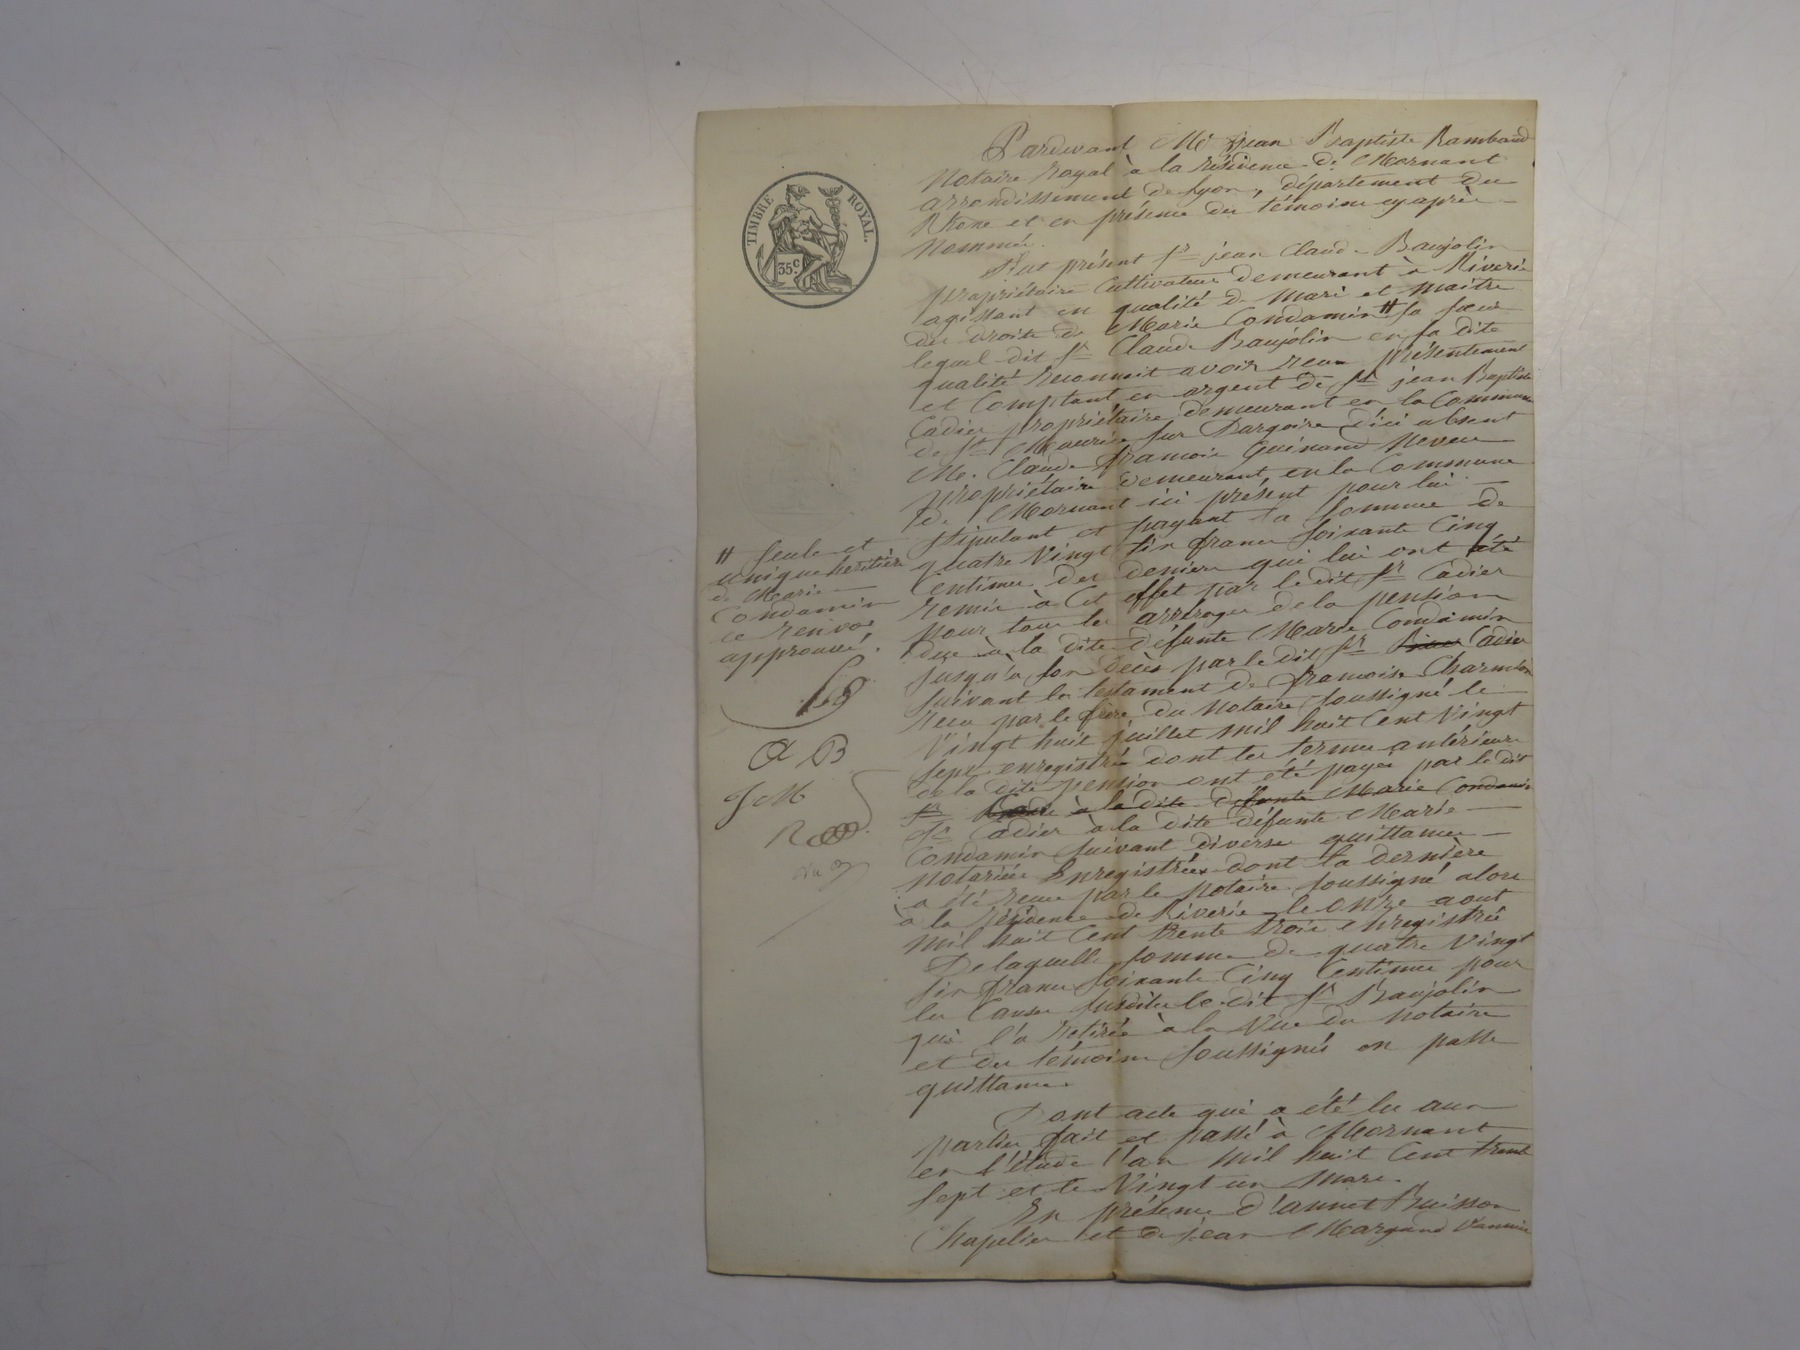 TIMBRE ROYAL.
35c
Pardevant Me jean Baptiste Rambaud
Notaire Royal à la résidence de Mornant
arrondissement de Lyon, département du
Rhone et en présence des témoins cyaprès
Nommés.
Fut présent Sr jean Claude Baujolin
propriétaire Cultivateur demeurant à Riverie
agissant en qualité de mari et maitre
des droits de Marie Condamin # sa
lequel dit Sr Claude Baujolin en sa dite
qualité reconnait avoir reçu présentement
et Comptant en argent de Sr jean Baptiste
Cadier propriétaire demeurant en la Commune
de St Maurice sur Dargoire d'ici absent
Me. Claude françois Guinand Neveu
propriétaire demeurant en la Commune
de Mornant ici présent pour lui
stipulant et payant la somme de
quatre Vingt six francs soixante Cinq
Centimes des deniers qui lui ont été
remis à Cet effet par le dit Sr Cadier
pour tous les arrérages de la pension
due à la dite défunte Marie Condamin
jusqu'à son décès par le dit Sr Cadier
suivant le testament de françoise Charmion
reçu par le frère du Notaire soussigné le
Vingt huit juillet mil huit Cent Vingt
sept enregistré dont les termes antérieurs
de la dite pension ont été payés par le dit
Sr à la dite défunte Marie Condamin
Sr Cadier à la dite défunte Marie
Condamin suivant diverses quittances
notariées Enregistrées dont la dernière
a été reçue par le Notaire soussigné alors
à la résidence de Riverie le onze aout
mil huit Cent trente trois enregistrée
De laquelle somme de quatre Vingt
six francs soixante Cinq Centimes pour
les Causes susdites le dit Sr Baujolin
qui l'a retirée à la Vue du Notaire
et des témoins soussignés en passe
quittance.
Dont acte qui a été lu aux
parties fait et passé à Mornant
en l'étude l'an mil huit Cent trente
sept et le Vingt un mars.
En présence d'annet Buisson
Chapelier et de jean Margand Vannier
# seule et
unique héritière
de Marie
Condamin
ce renvoi
approuvé.
a B
J M
R